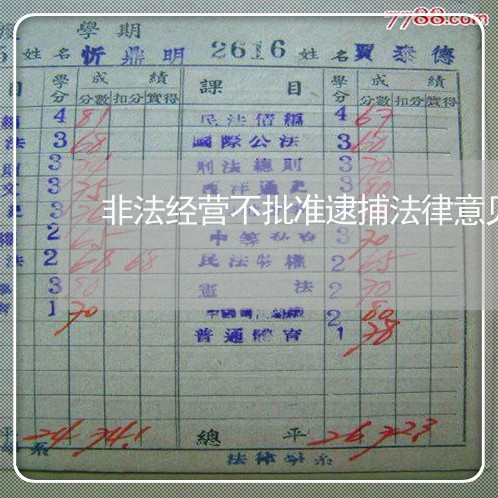 7788.com
學期
5 姓名 忻鼎明 2616 姓名 賈泰德
目 學分 成績 課目 學分 成績
分數 扣分 實得 分數 扣分 實得
4 81 民法債編 4 67
法 3 68 國際公法 3 60
3 刑法總則 3 70
3 75 西洋通史 3 80
非法经营不批准逮捕法律意见
2 65 3 70
法 2 68 68 民法物權 2 65
3 80 憲法 2 70
1 70 2 80
普通體育 1 78
平 24 74.1 總平 26 72.3
系 法律學系